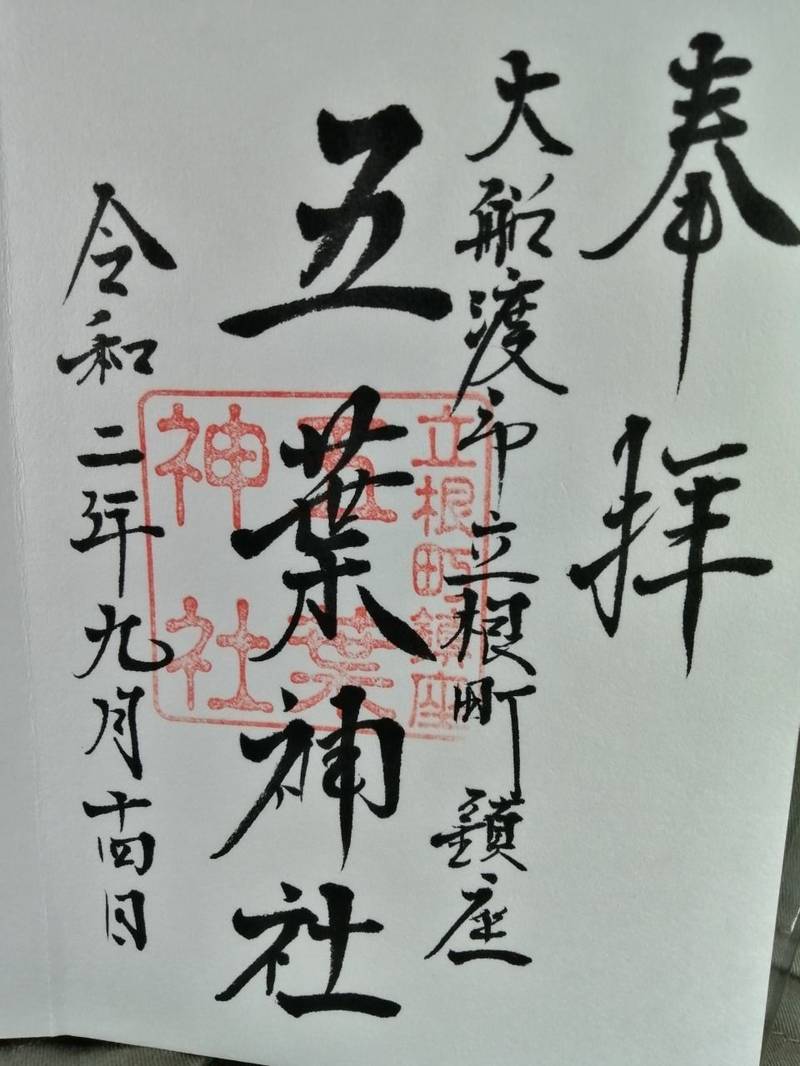 奉拝
大船渡市立根町鎮座
五葉神社
令和二年九月十四日
立根町鎮座
五葉
神社